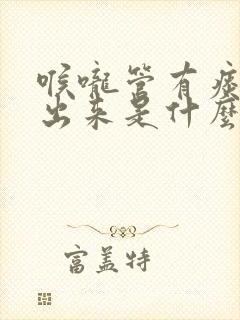 喉嚨管有痰
出来是什麼
富盖特